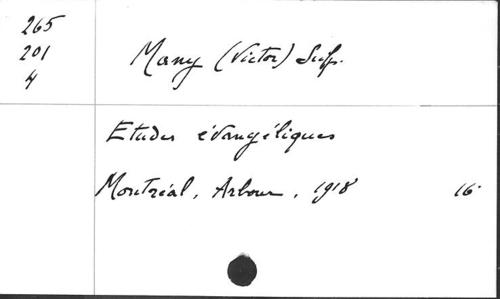 265
201
4
Many (Victor) Sulp.
Etudes évangéliques
Montréal, Arbour, 1918 16°